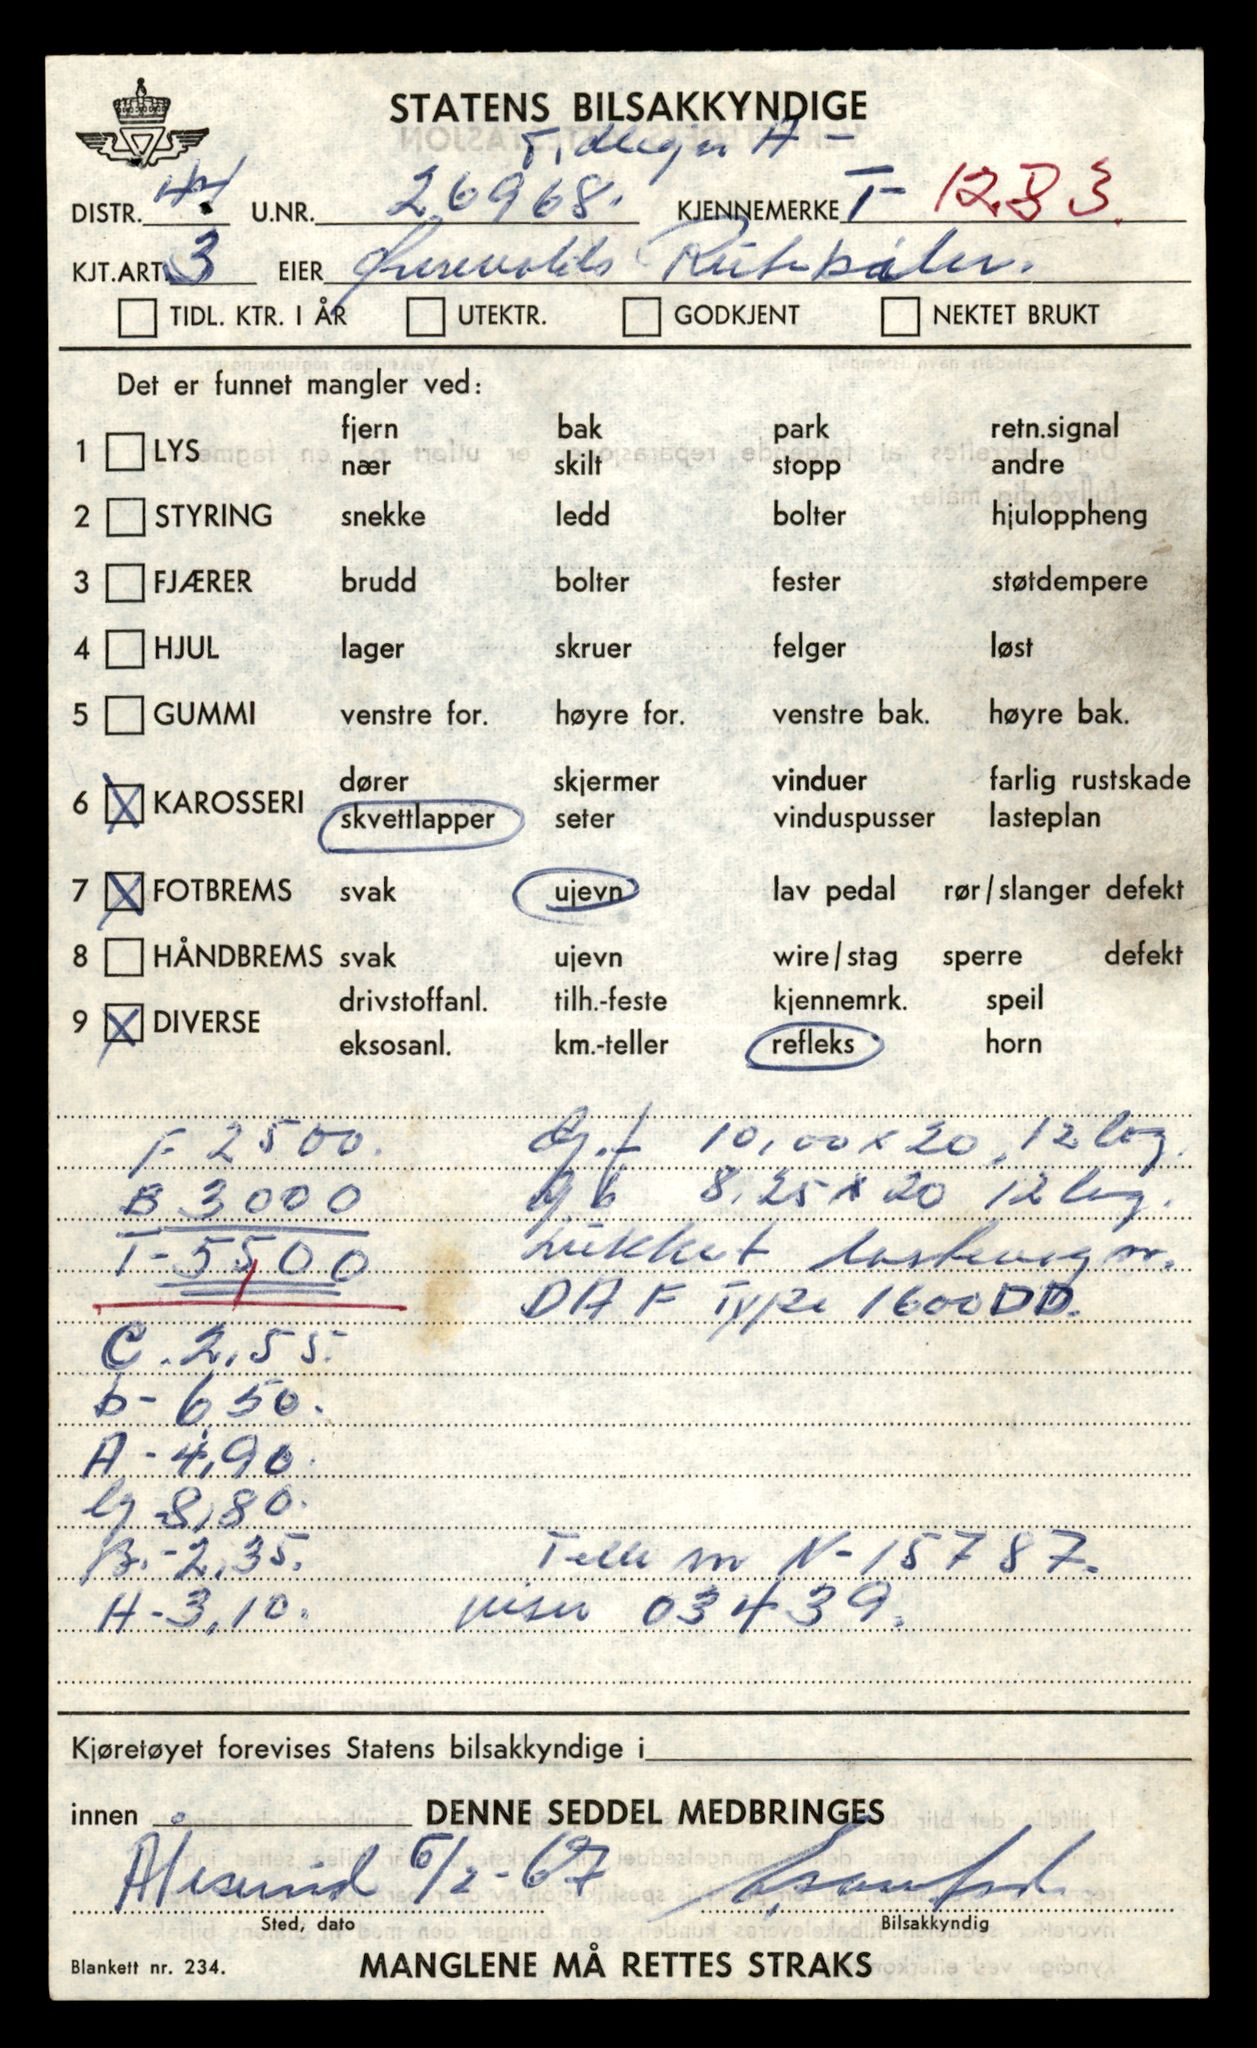 STATENS BILSAKKYNDIGE
Tidligere A-
DISTR. U.NR. 26968. KJENNEMERKE T- 1283.
KJT.ART. 3 EIER Rutebiler.
TIDL. KTR. I ÅR UTEKTR. GODKJENT NEKTET BRUKT
Det er funnet mangler ved:
fjern bak park retn.signal
1 LYS
nær skilt stopp andre
2 STYRING snekke ledd bolter hjuloppheng
3 FJÆRER brudd bolter fester støtdempere
4 HJUL lager skruer felger løst
5 GUMMI venstre for. høyre for. venstre bak. høyre bak.
dører skjermer vinduer farlig rustskade
6 X KAROSSERI
skvettlapper seter vinduspusser lasteplan
7 X FOTBREMS svak ujevn lav pedal rør/slanger defekt
8 HÅNDBREMS svak ujevn wire/stag sperre defekt
drivstoffanl. tilh.-feste kjennemrk. speil
9 X DIVERSE
eksosanl. km.-teller refleks horn
F 2500. dg.f 10,00 x 20, 12 lag.
B 3000 dg b 8.25 x 20 12 lag.
T-5500 Lukket lastevogn.
DAF Type 1600DD.
C. 2,55.
b- 6,50.
A- 4,90.
lg-8,80.
B.-2,35. Tell nr N-15787.
H-3,10. viser 03439.
Kjøretøyet forevises Statens bilsakkyndige i
innen DENNE SEDDEL MEDBRINGES
Ålesund 6/2-67
Sted, dato Bilsakkyndig
Blankett nr. 234. MANGLENE MÅ RETTES STRAKS